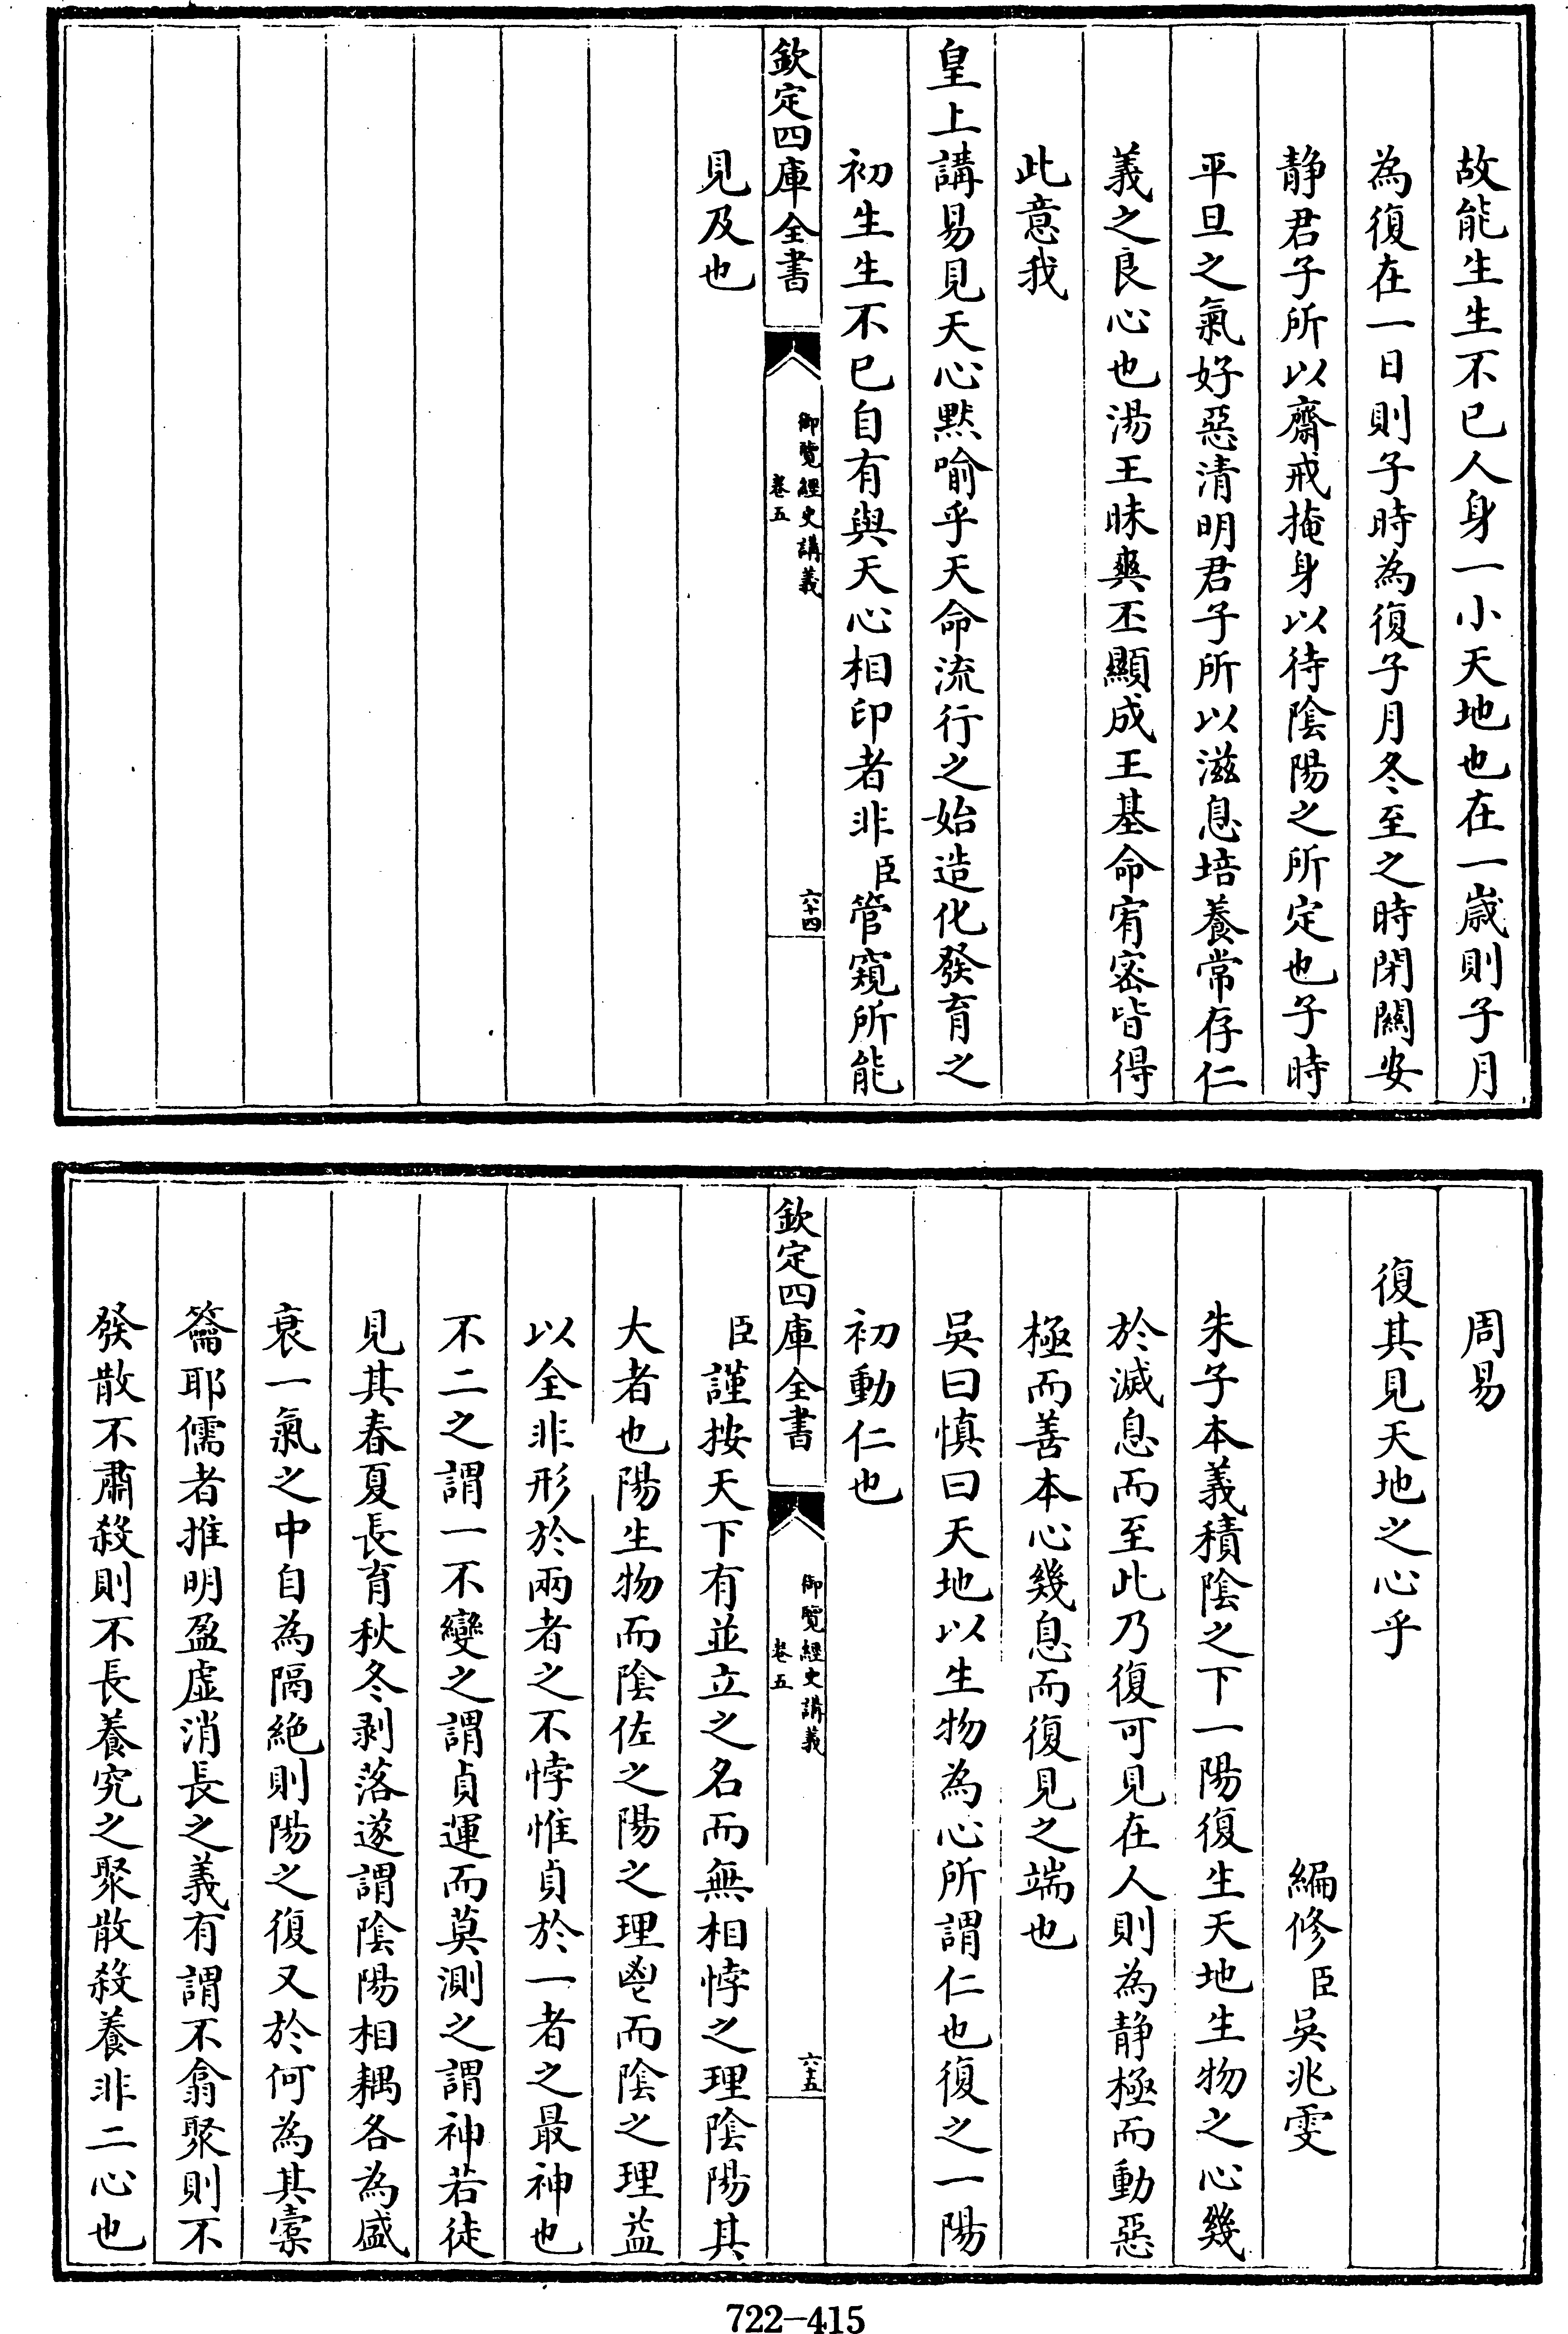 故能生生不已人身一小天地也在一嵗則子月
為復在一日則子時為復子月冬至之時閉闗安
静君子所以齋戒掩身以待隂陽之所定也子時
平旦之氣好惡清明君子所以滋息培養常存仁
義之良心也湯王昧爽丕顯成王基命宥密皆得
此意我
皇上講易見天心黙喻乎天命流行之始造化發育之
初生生不已自有與天心相印者非臣管窺所能
欽定四庫全書
御覽經史講義
卷五
六十四
見及也
周易
復其見天地之心乎
編修臣吳兆雯
朱子本義積隂之下一陽復生天地生物之心幾
於滅息而至此乃復可見在人則為静極而動惡
極而善本心幾息而復見之端也
吳曰慎曰天地以生物為心所謂仁也復之一陽
初動仁也
欽定四庫全書
御覽經史講義
卷五
六十五
臣謹按天下有並立之名而無相悖之理隂陽其
大者也陽生物而隂佐之陽之理鬯而隂之理益
以全非形於兩者之不悖惟貞於一者之最神也
不二之謂一不變之謂貞運而莫測之謂神若徒
見其春夏長育秋冬剥落遂謂隂陽相耦各為盛
衰一氣之中自為隔絶則陽之復又於何為其槖
籥耶儒者推明盈虚消長之義有謂不翕聚則不
發散不肅殺則不長養究之聚散殺養非二心也
722-415